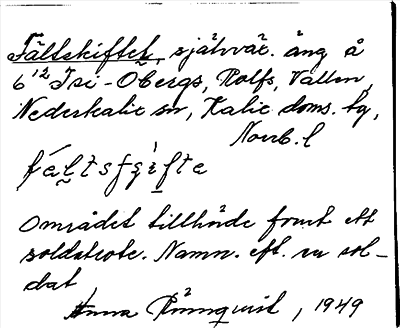 Fältskiftet, självär. äng å
6¹² Isi-Obergs, Rolfs, Vallen,
Nederkalix sn, Kalix doms. tg,
Norrb. l
fǽl̬tsfʂìfte
Området tillhörde förut ett
soldattorp. Namn. eft. en sol-
dat
Anna Rönnquist, 1949